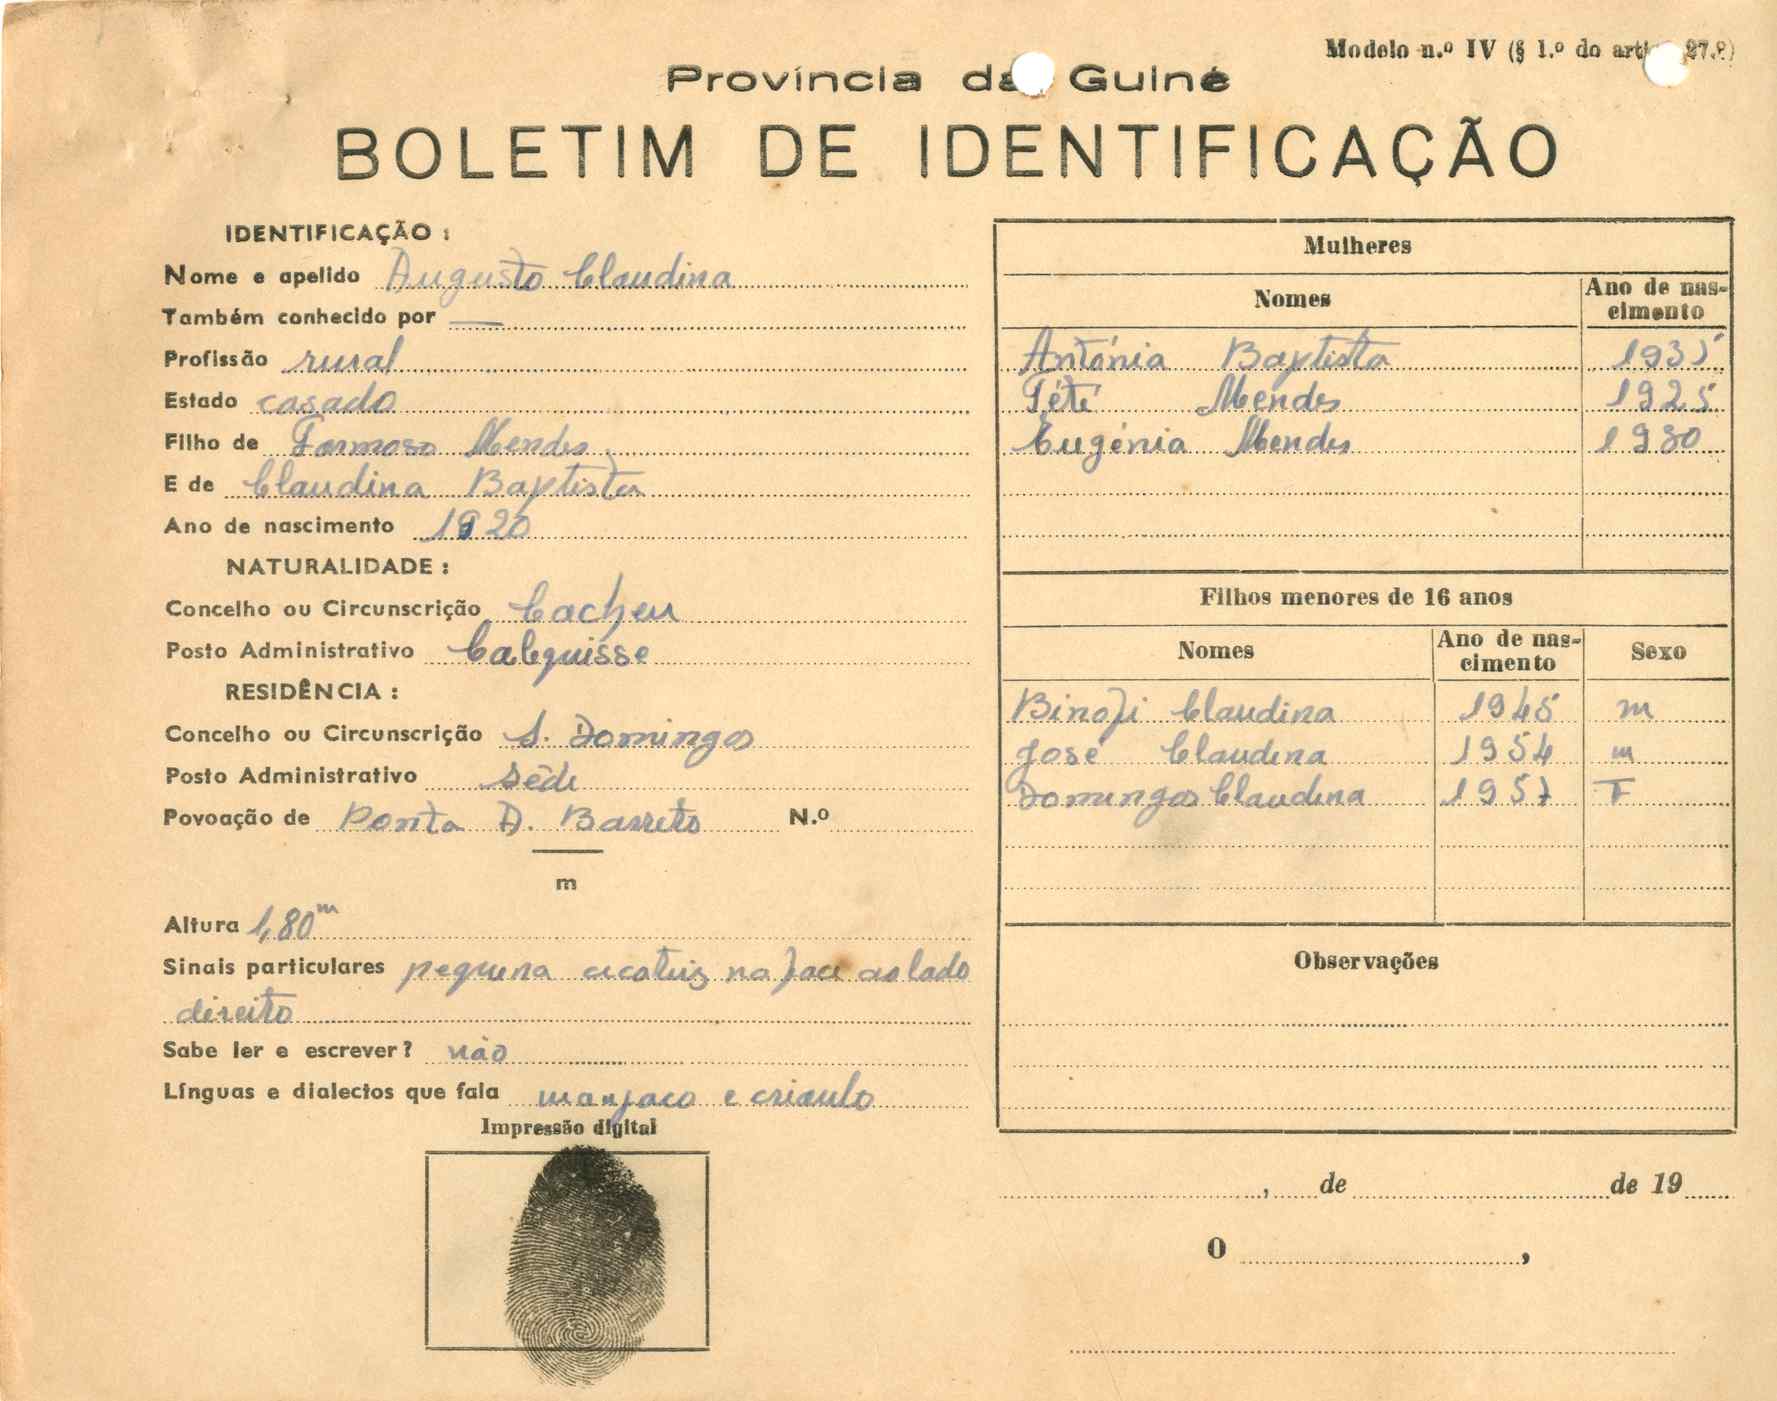 Modelo n.º IV (§ 1.º do arti 27.º)
Província da Guiné
BOLETIM DE IDENTIFICAÇÃO
IDENTIFICAÇÃO :
Nome e apelido Augusto Claudina
Também conhecido por —
Profissão rural
Estado casado
Filho de Formoso Mendes
E de Claudina Baptista
Ano de nascimento 1920
NATURALIDADE :
Concelho ou Circunscrição Cacheu
Posto Administrativo Calequisse
RESIDÊNCIA :
Concelho ou Circunscrição S. Domingos
Posto Administrativo Séde
Povoação de Ponta D. Barreto N.º
m
Altura 1,80m
Sinais particulares pequena cicatriz na face ao lado
direito
Sabe ler e escrever? não
Línguas e dialectos que fala manjaco e crioulo
Impressão digital
Mulheres
Nomes Ano de nas-
cimento
Antónia Baptista 1935
Tété Mendes 1925
Eugénia Mendes 1930
Filhos menores de 16 anos
Nomes Ano de nas-
cimento Sexo
Claudina 1945 m
José Claudina 1954 m
Domingas Claudina 1957 F
Observações
, de de 19
O ,